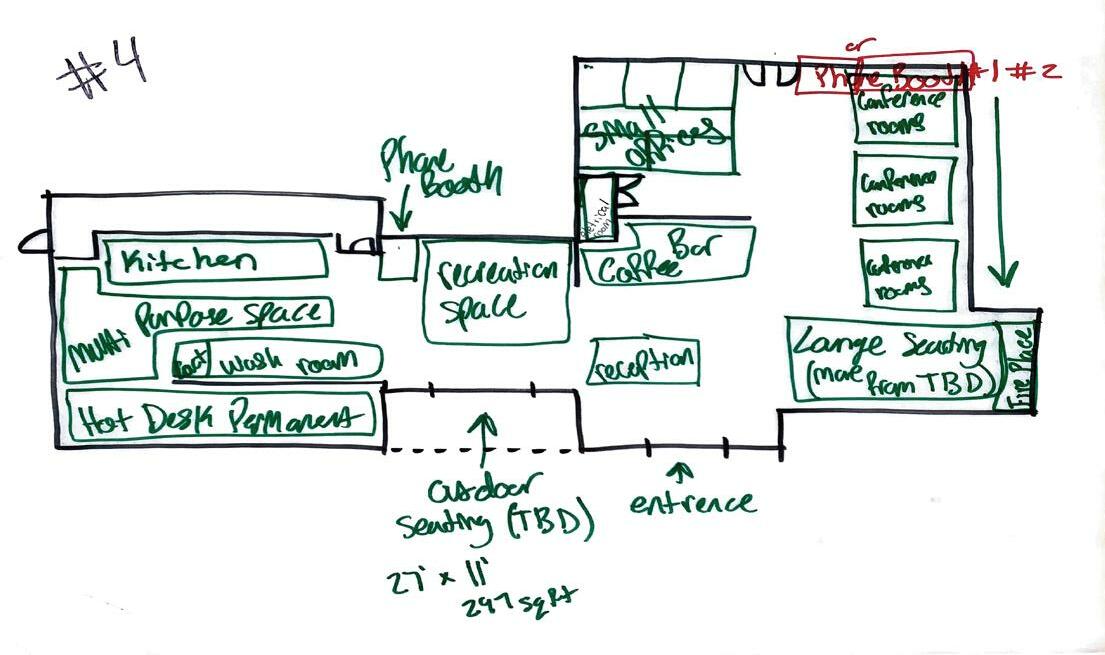 #4
or
Phone Booth #1 #2
Conference
rooms
small
offices
Phone
Booth
Conference
rooms
room
Bar
Coffee
Kitchen
recreation
space
Conference
rooms
Multi Purpose space
wash room
reception
Large Seating
(more from TBD)
Fire Place
Hot Desk Permanent
outdoor
seating (TBD)
entrence
27' x 11'
297 sqft